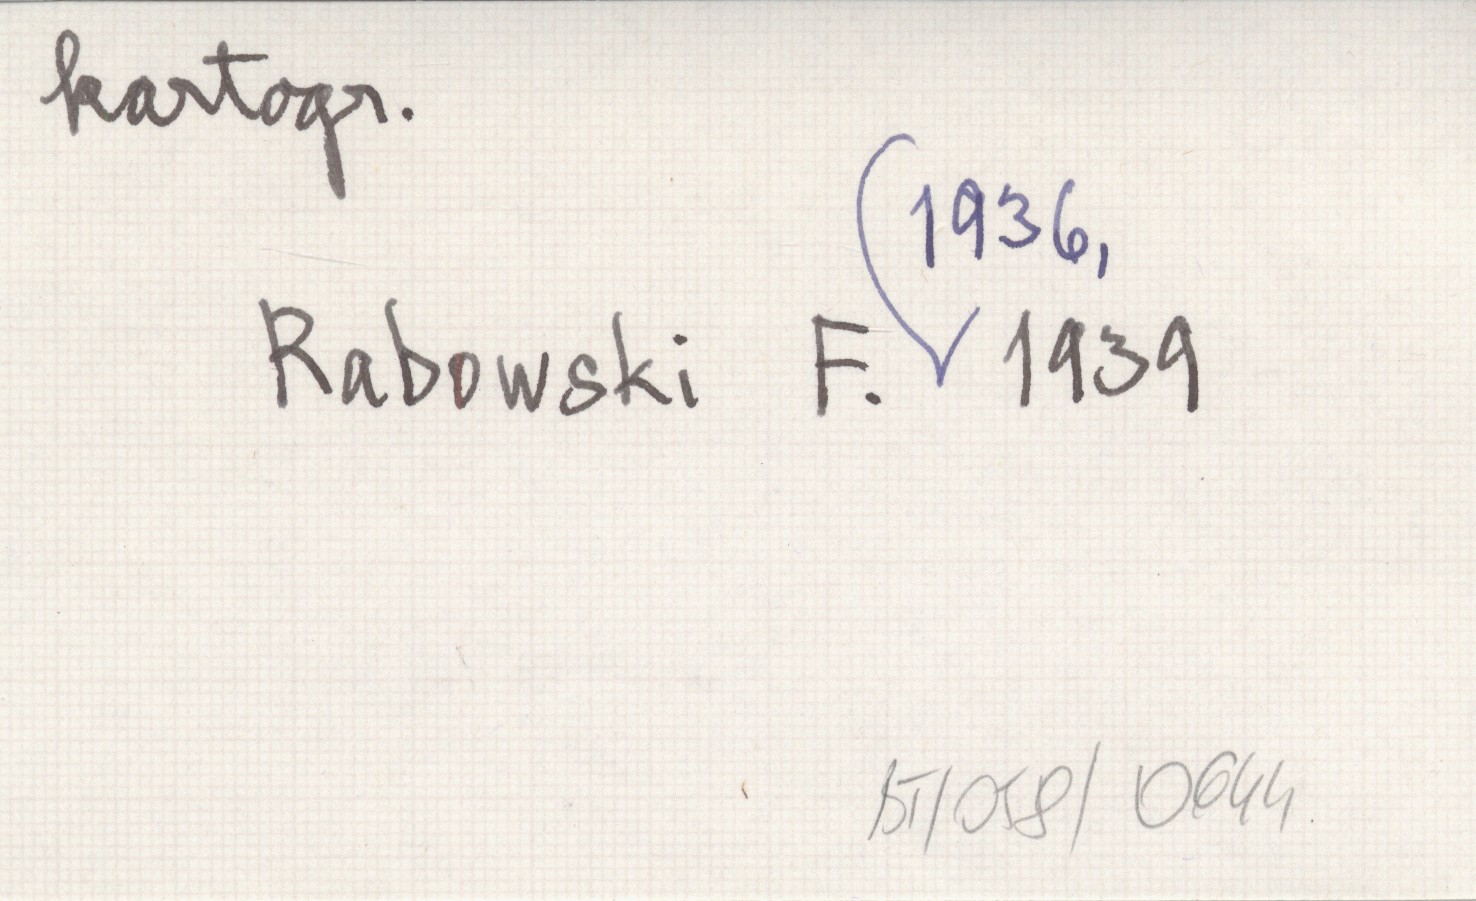 kartogr.
1936,
Rabowski F. 1939
BT/058/0644